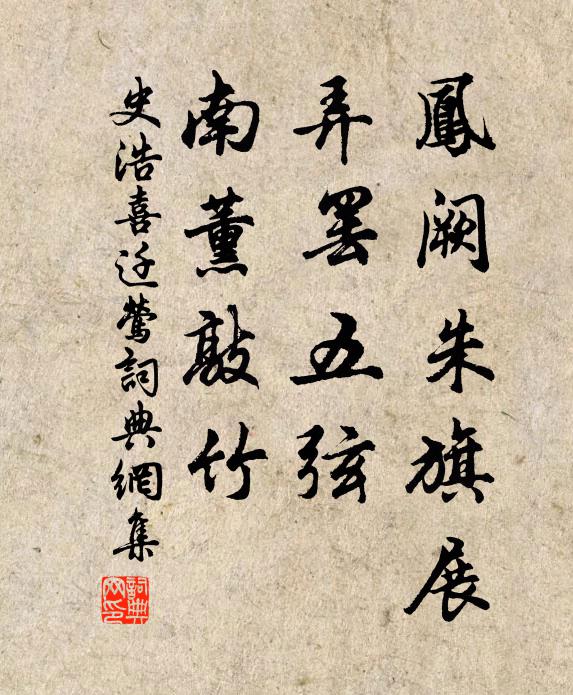 鳳阙朱旗展
弄罢五弦
南薰敲竹
史浩喜迁莺詞典網集
詞典網印